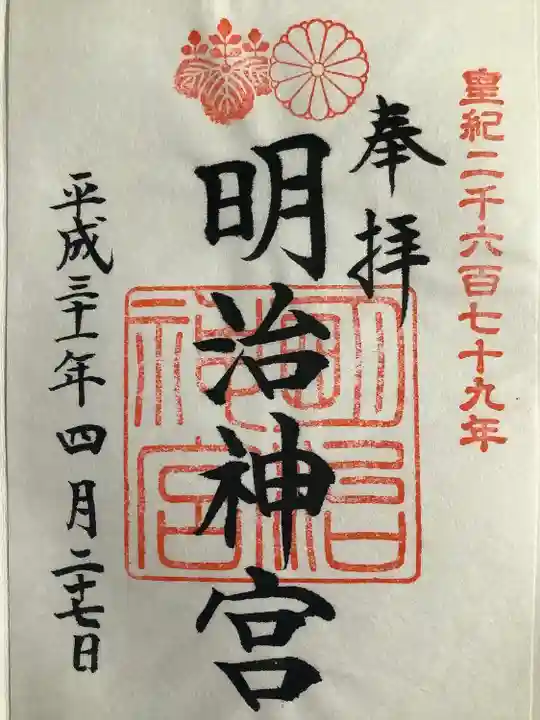 皇紀二千六百七十九年
奉拝
明治神宮
明治神宮
平成三十一年四月二十七日